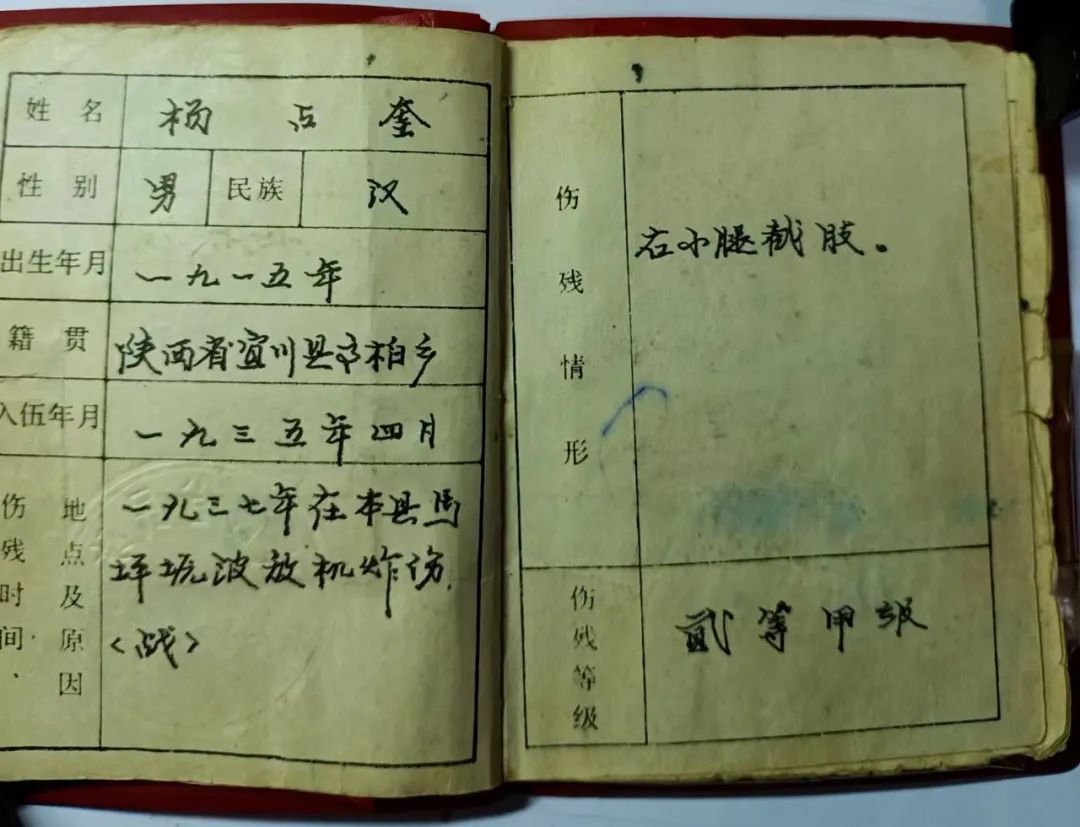 姓名 杨占奎
性别 男 民族 汉
出生年月 一九一五年
籍贯 陕西省宜川县高柏乡
入伍年月 一九三五年四月
伤残时间、地点及原因
一九三七年在本县馬
坪坑波敌机炸伤.
<战>
伤残情形
右小腿截肢。
伤残等级
貳等甲级